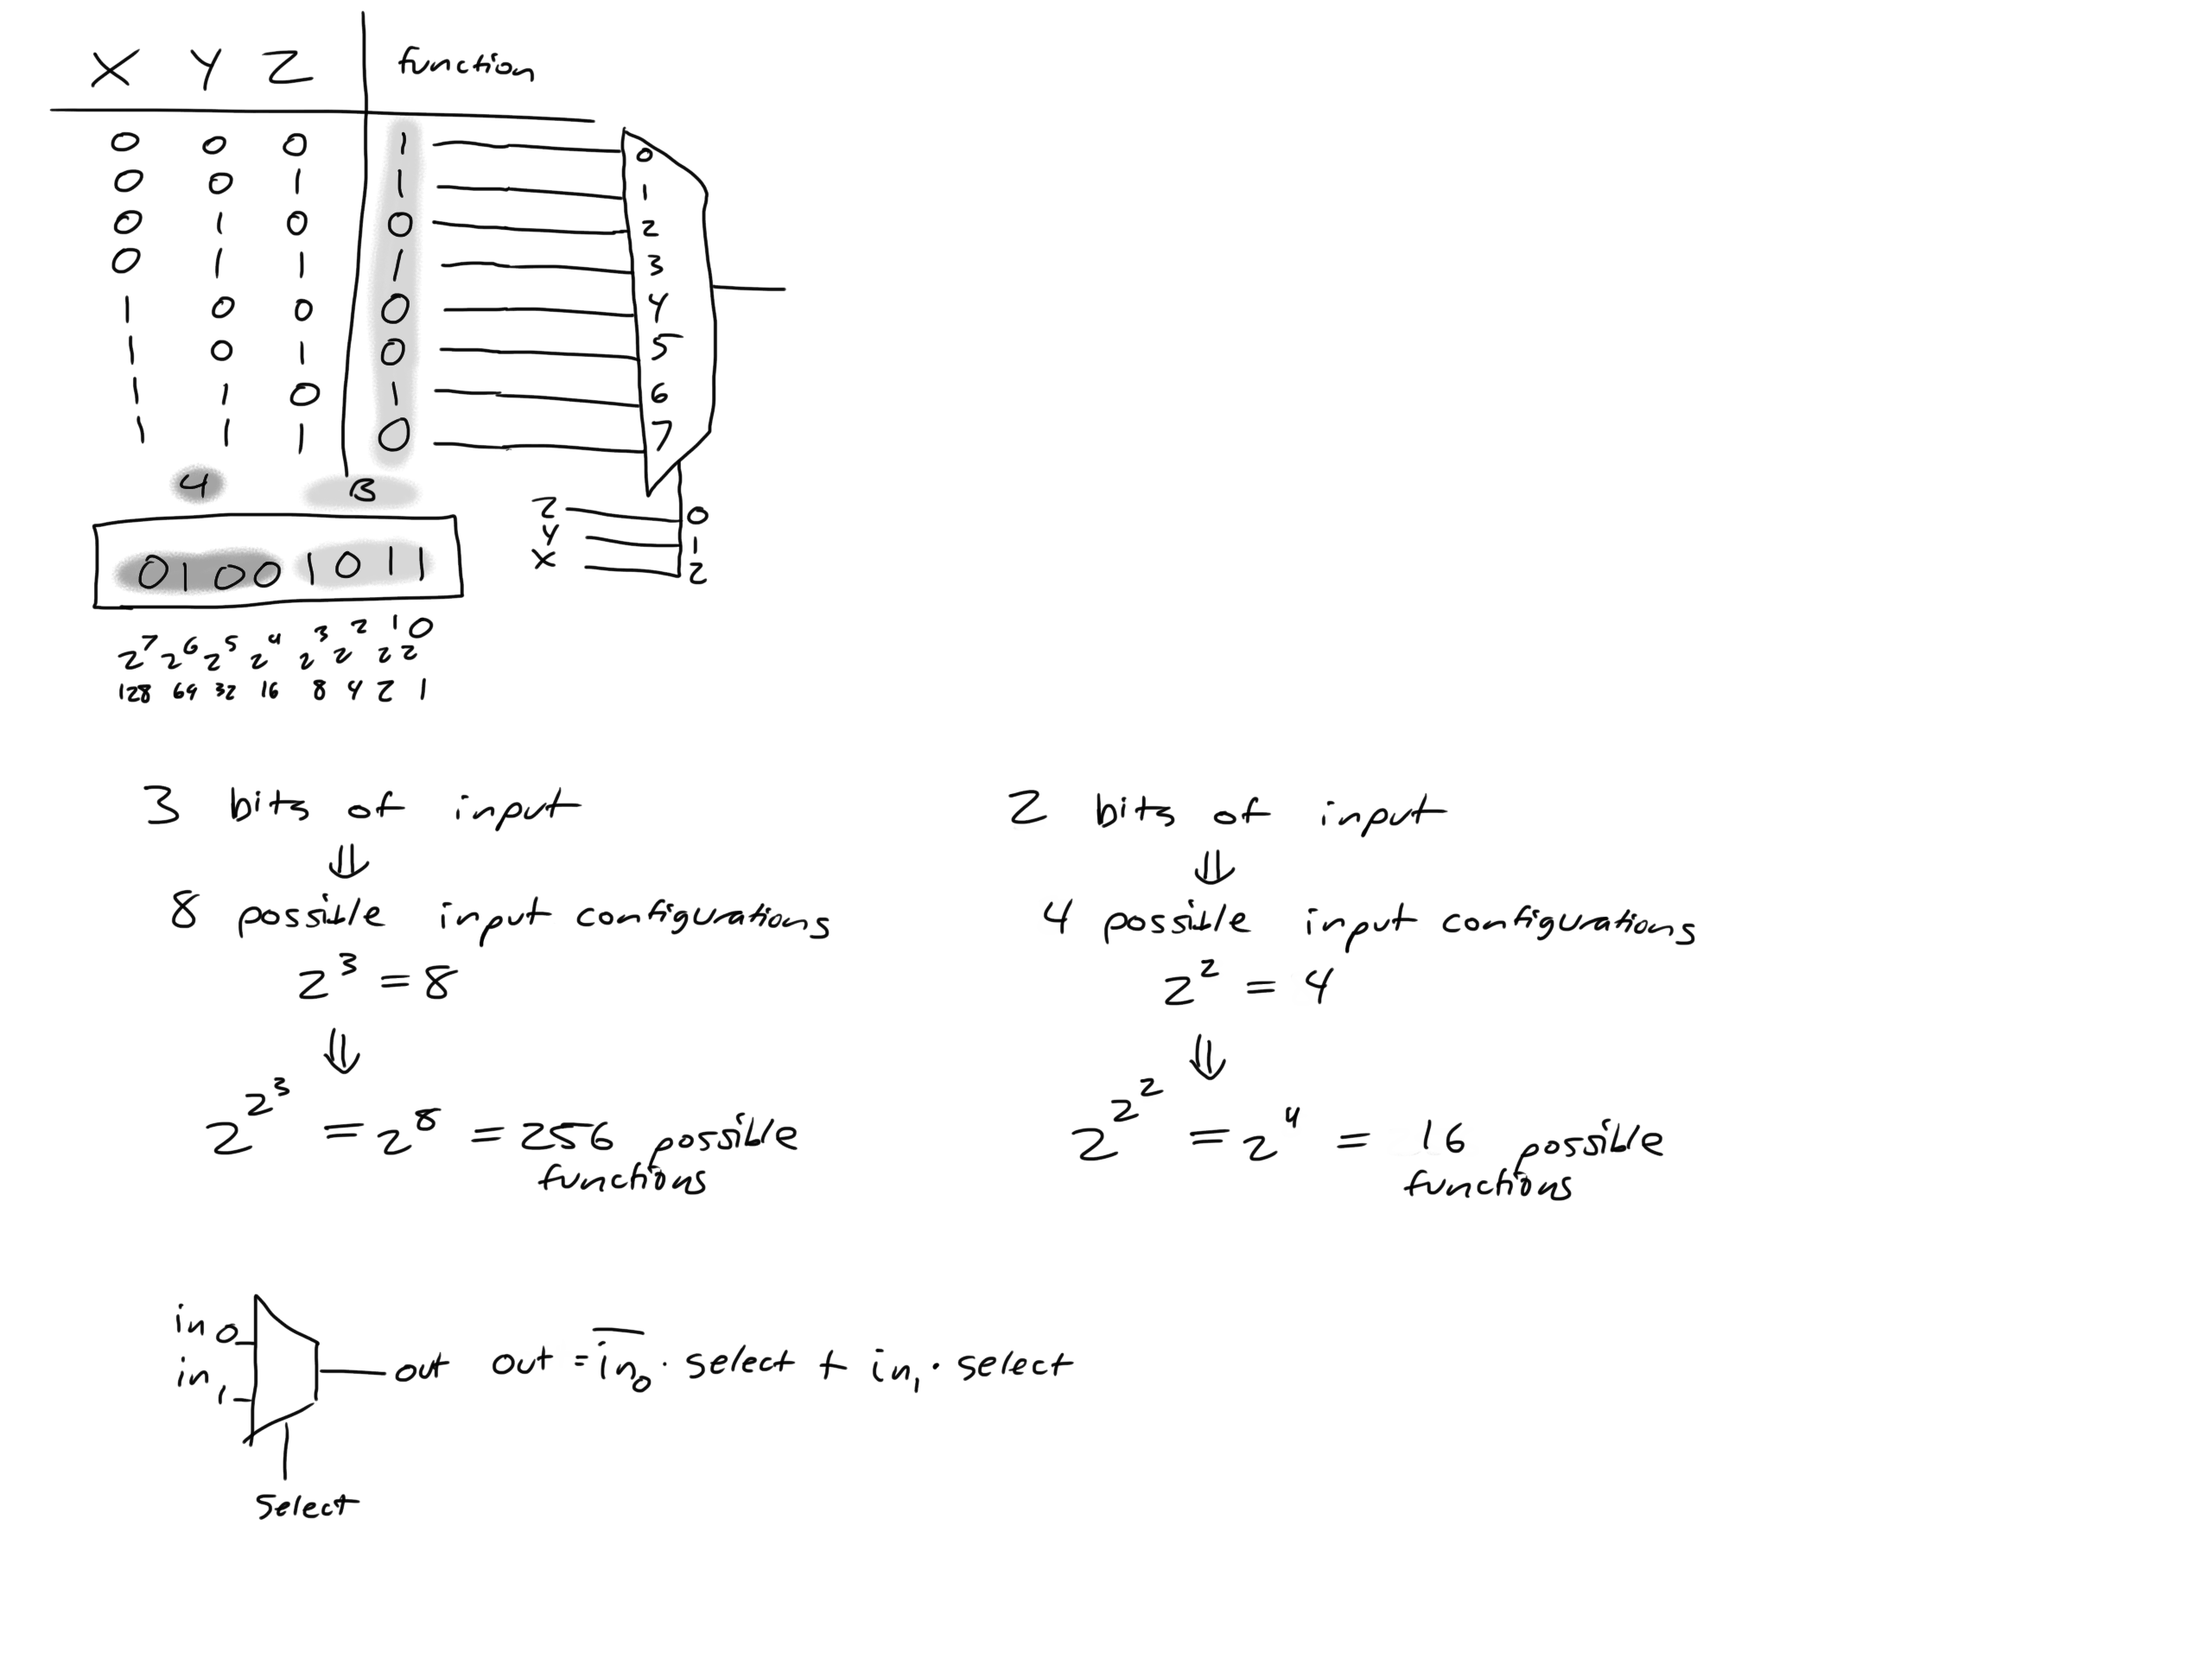 X Y Z function
0 0 0 1 0
0 0 1 1 1
0 1 0 0 2
0 1 1 1 3
1 0 0 0 4
1 0 1 0 5
1 1 0 1 6
1 1 1 0 7
4 B
01001011
Z 0
Y 1
X 2
2⁷ 2⁶ 2⁵ 2⁴ 2³ 2² 2¹ 2⁰
128 64 32 16 8 4 2 1
3 bits of input
⇓
8 possible input configurations
2³ = 8
⇓
2^2^3 = 2⁸ = 256 possible
functions
2 bits of input
⇓
4 possible input configurations
2² = 4
⇓
2^2^2 = 2⁴ = 16 possible
functions
in 0
in 1
out out = \overline{in₀} · select + in₁ · select
Select